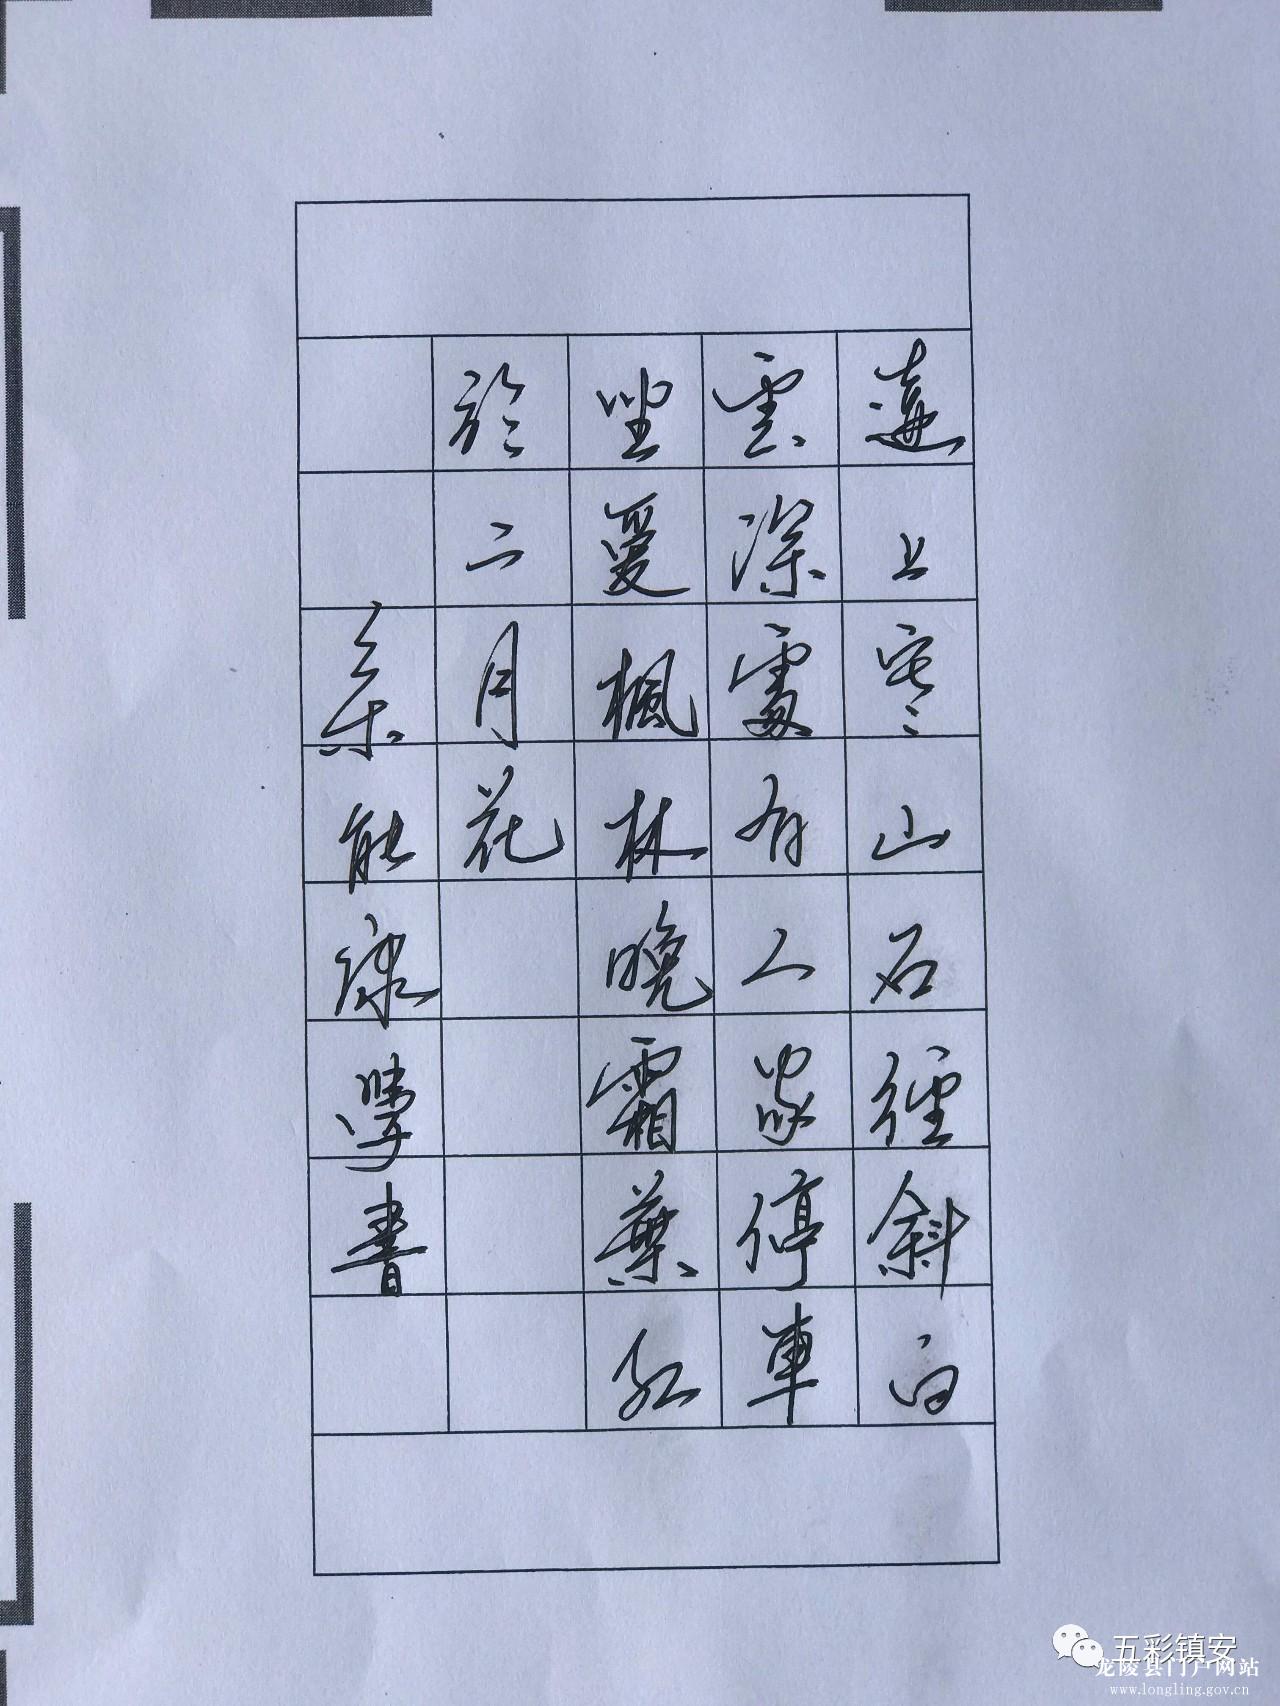 遠上寒山石徑斜白
雲深處有人家停車
坐愛楓林晚霜葉紅
於二月花
余能康學書
五彩镇安
龙陵县门户网站
www.longling.gov.cn